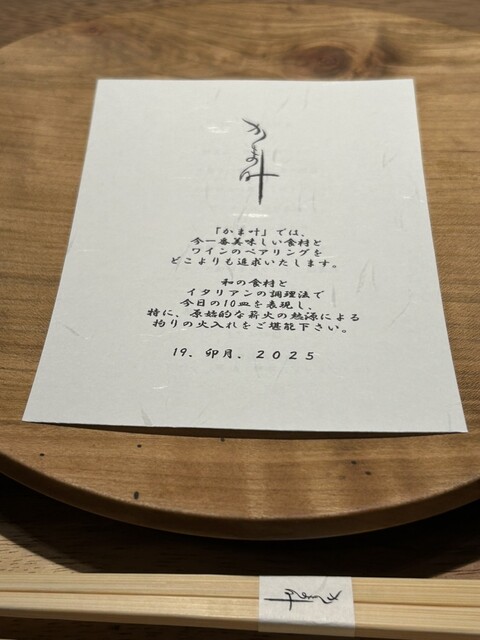 かま叶
「かま叶」では、
今一番美味しい食材と
ワインのペアリングを
どこよりも追求いたします。
和の食材と
イタリアンの調理法で
今日の10皿を表現し、
特に、原始的な薪火の熱源による
拘りの火入れをご堪能下さい。
19. 卯月. 2025
かま叶